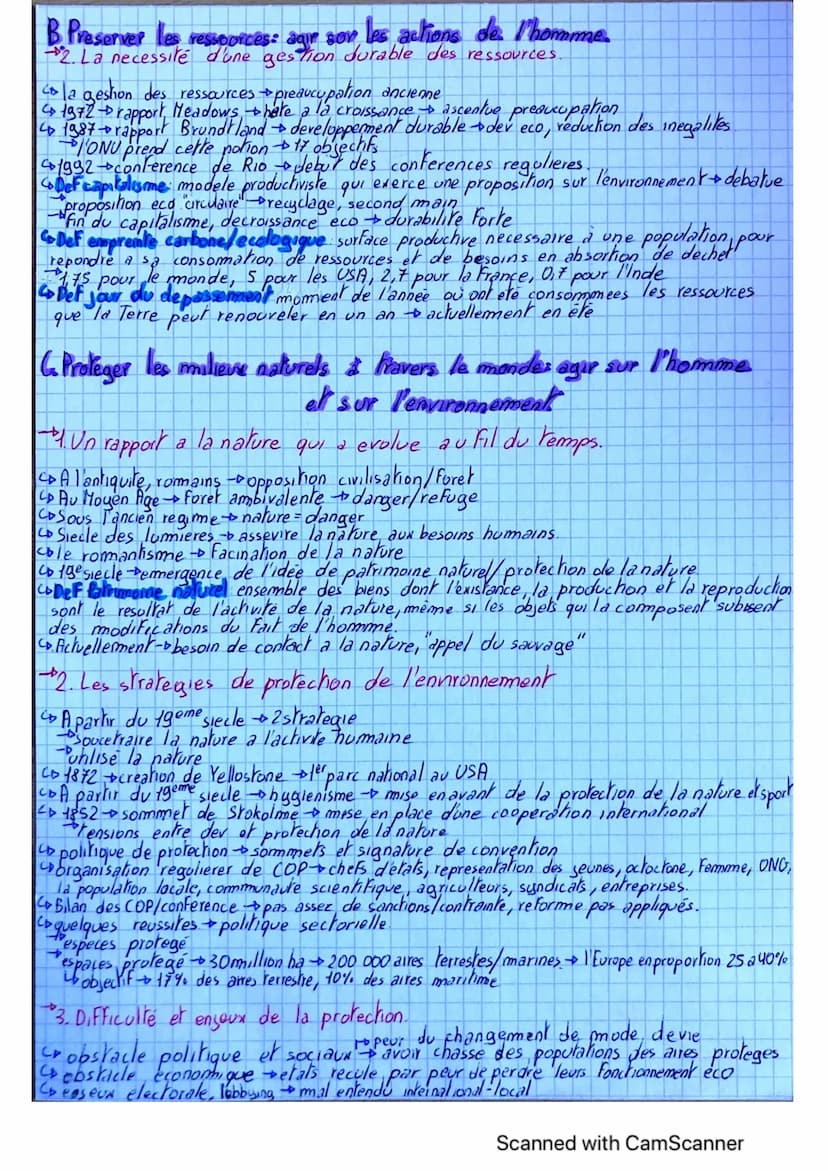 B Preserver les ressources: agir sur les actions de l'homme
→2. La necessité d'une gestion durable des ressources.
↪la gestion des ressources→preaucupation ancienne
↪1972→rapport Meadows→halte a la croissance→ascentue preaucupation
↪1987→rapport Brundtland→developpement durable→dev eco, reduction des inegalités
→l'ONU prend cette notion→17 objectifs
↪1992→conference de Rio→debut des conferences regulieres
↪Def capitalisme: modele productiviste qui exerce une proposition sur l'environnement→debatue
→proposition eco "circulaire"→recyclage, second main
→Fin du capitalisme, decroissance eco→durabilité forte
↪Def empreinte carbone/ecologique: surface productive necessaire à une population, pour
repondre a sa consommation de ressources et de besoins en absortion de dechet
→1,75 pour le monde, 5 pour les USA, 2,7 pour la France, 0,7 pour l'Inde
↪Def jour du depassement momment de l'année où ont été consommees les ressources
que la Terre peut renouveler en un an→actuellement en été
C. Proteger les milieux naturels à travers le monde: agir sur l'homme
et sur l'environnement
→1. Un rapport a la nature qui a evolue au fil du temps.
↪A l'antiquite, romains→opposition civilisation/foret
↪Au Moyen Age→foret ambivalente→danger/refuge
↪Sous l'ancien regime→nature=danger
↪Siecle des lumieres→assevire la nature, aux besoins humains.
↪le romantisme→Facination de la nature
↪19e siecle→emmergence de l'idée de patrimoine naturel/protection de la nature
↪Def Patrimoine naturel ensemble des biens dont l'existance, la production et la reproduction
sont le resultat de l'activité de la nature, même si les objets qui la composent subisent
des modifications du fait de l'homme.
↪Actuellement→besoin de contact a la nature, "appel du sauvage"
→2. Les strategies de protection de l'environnement
↪A partir du 19eme siecle→2 strategie
→soucetraire la nature a l'activite humaine
→utilisé la nature
↪1872→creation de Yellostone→1er parc national au USA
↪A partir du 19eme siecle→hygienisme→mise en avant de la protection de la nature et sport
↪1852→sommet de Stokolme→mise en place d'une cooperation international
→Tensions entre dev et protection de la nature
↪politique de protection→sommets et signature de convention
↪organisation regulierer de COP→chefs d'états, representation des jeunes, actoctone, femme, ONG,
la population locale, communaute scientifique, agriculteurs, syndicats, entreprises.
↪Bilan des COP/conference→pas assez de sanctions/contrainte, reforme pas appliqués.
↪quelques reussites→politique sectorielle
→especes protegé
→espaces protegé→30 million ha→200 000 aires terrestes/marines→l'Europe en proportion 25 a 40%
↪objectif→17% des aires terrestre, 10% des aires maritime
→3. Difficulté et enjeux de la protection.
→peur du changement de mode de vie
↪obstacle politique et sociaux→avoir chasse des populations des aires proteges
↪obstacle économique→etats recule par peur de perdre leurs fonctionnement éco
↪enjeux electorale, lobbying→mal entendu international-local
Scanned with CamScanner